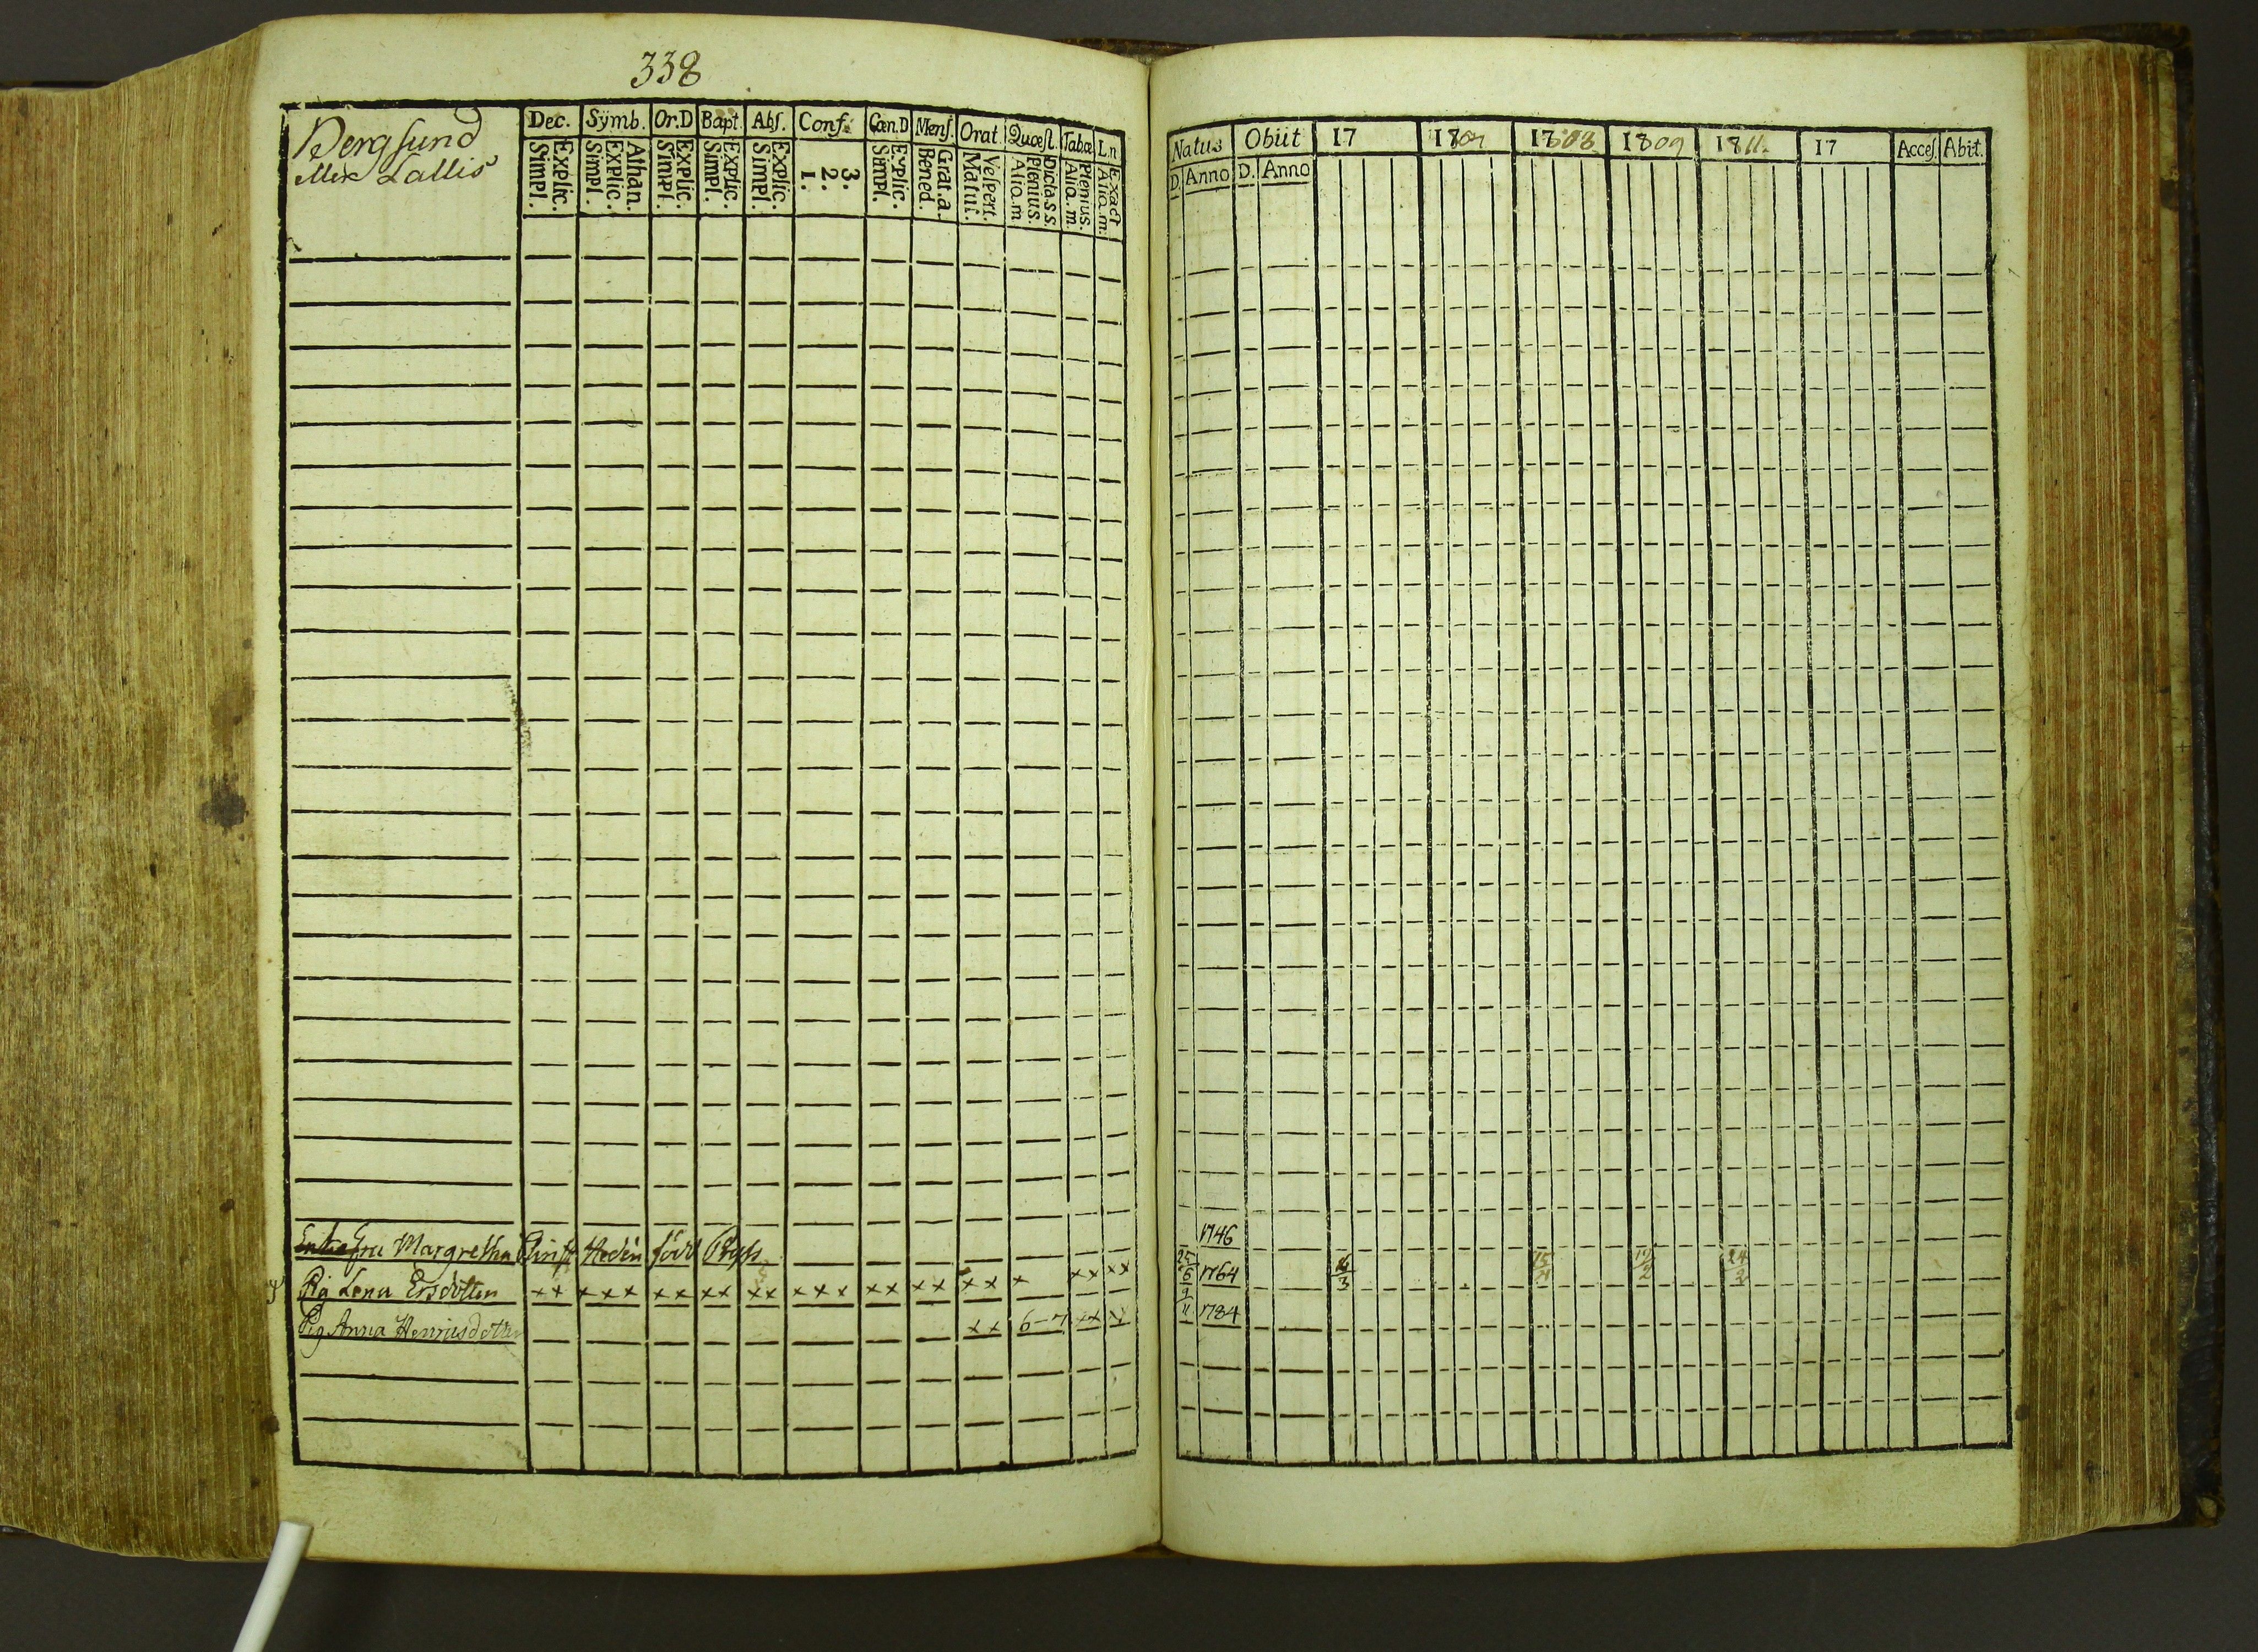 338
Bergsund
eller Lallis
Dec. Sÿmb. Or.D Bapt. Abs. Conf. Cœn.D Mens. Orat. Quœst. Tabœ L.n
Explic. Simpl. Athan. Explic. Simpl. Explic. Simpl. Explic. Simpl. Explic. Simpl. 3. 2. 1. Explic. Simpl. Grat. a. Bened. Vespert. Matut. Dicta s.s. Plenius. Alio. m Plenius. Alio. m. Exact Alio. m.
Natus Obiit 17 1807 1808 1809 1811. 17 Acces. Abit.
D. Anno D. Anno
Enkefru Margretha Christ. Hedén född 1746
Pig Lena Ersdotter ×× ××× ×× ×× ×× ××× ×× ×× ×× × ×× ×× 25/6 1764 15/4 19/2 24/2
Pig Anna Henricsdotter ×× 6–7 ×× × 9/11 1784